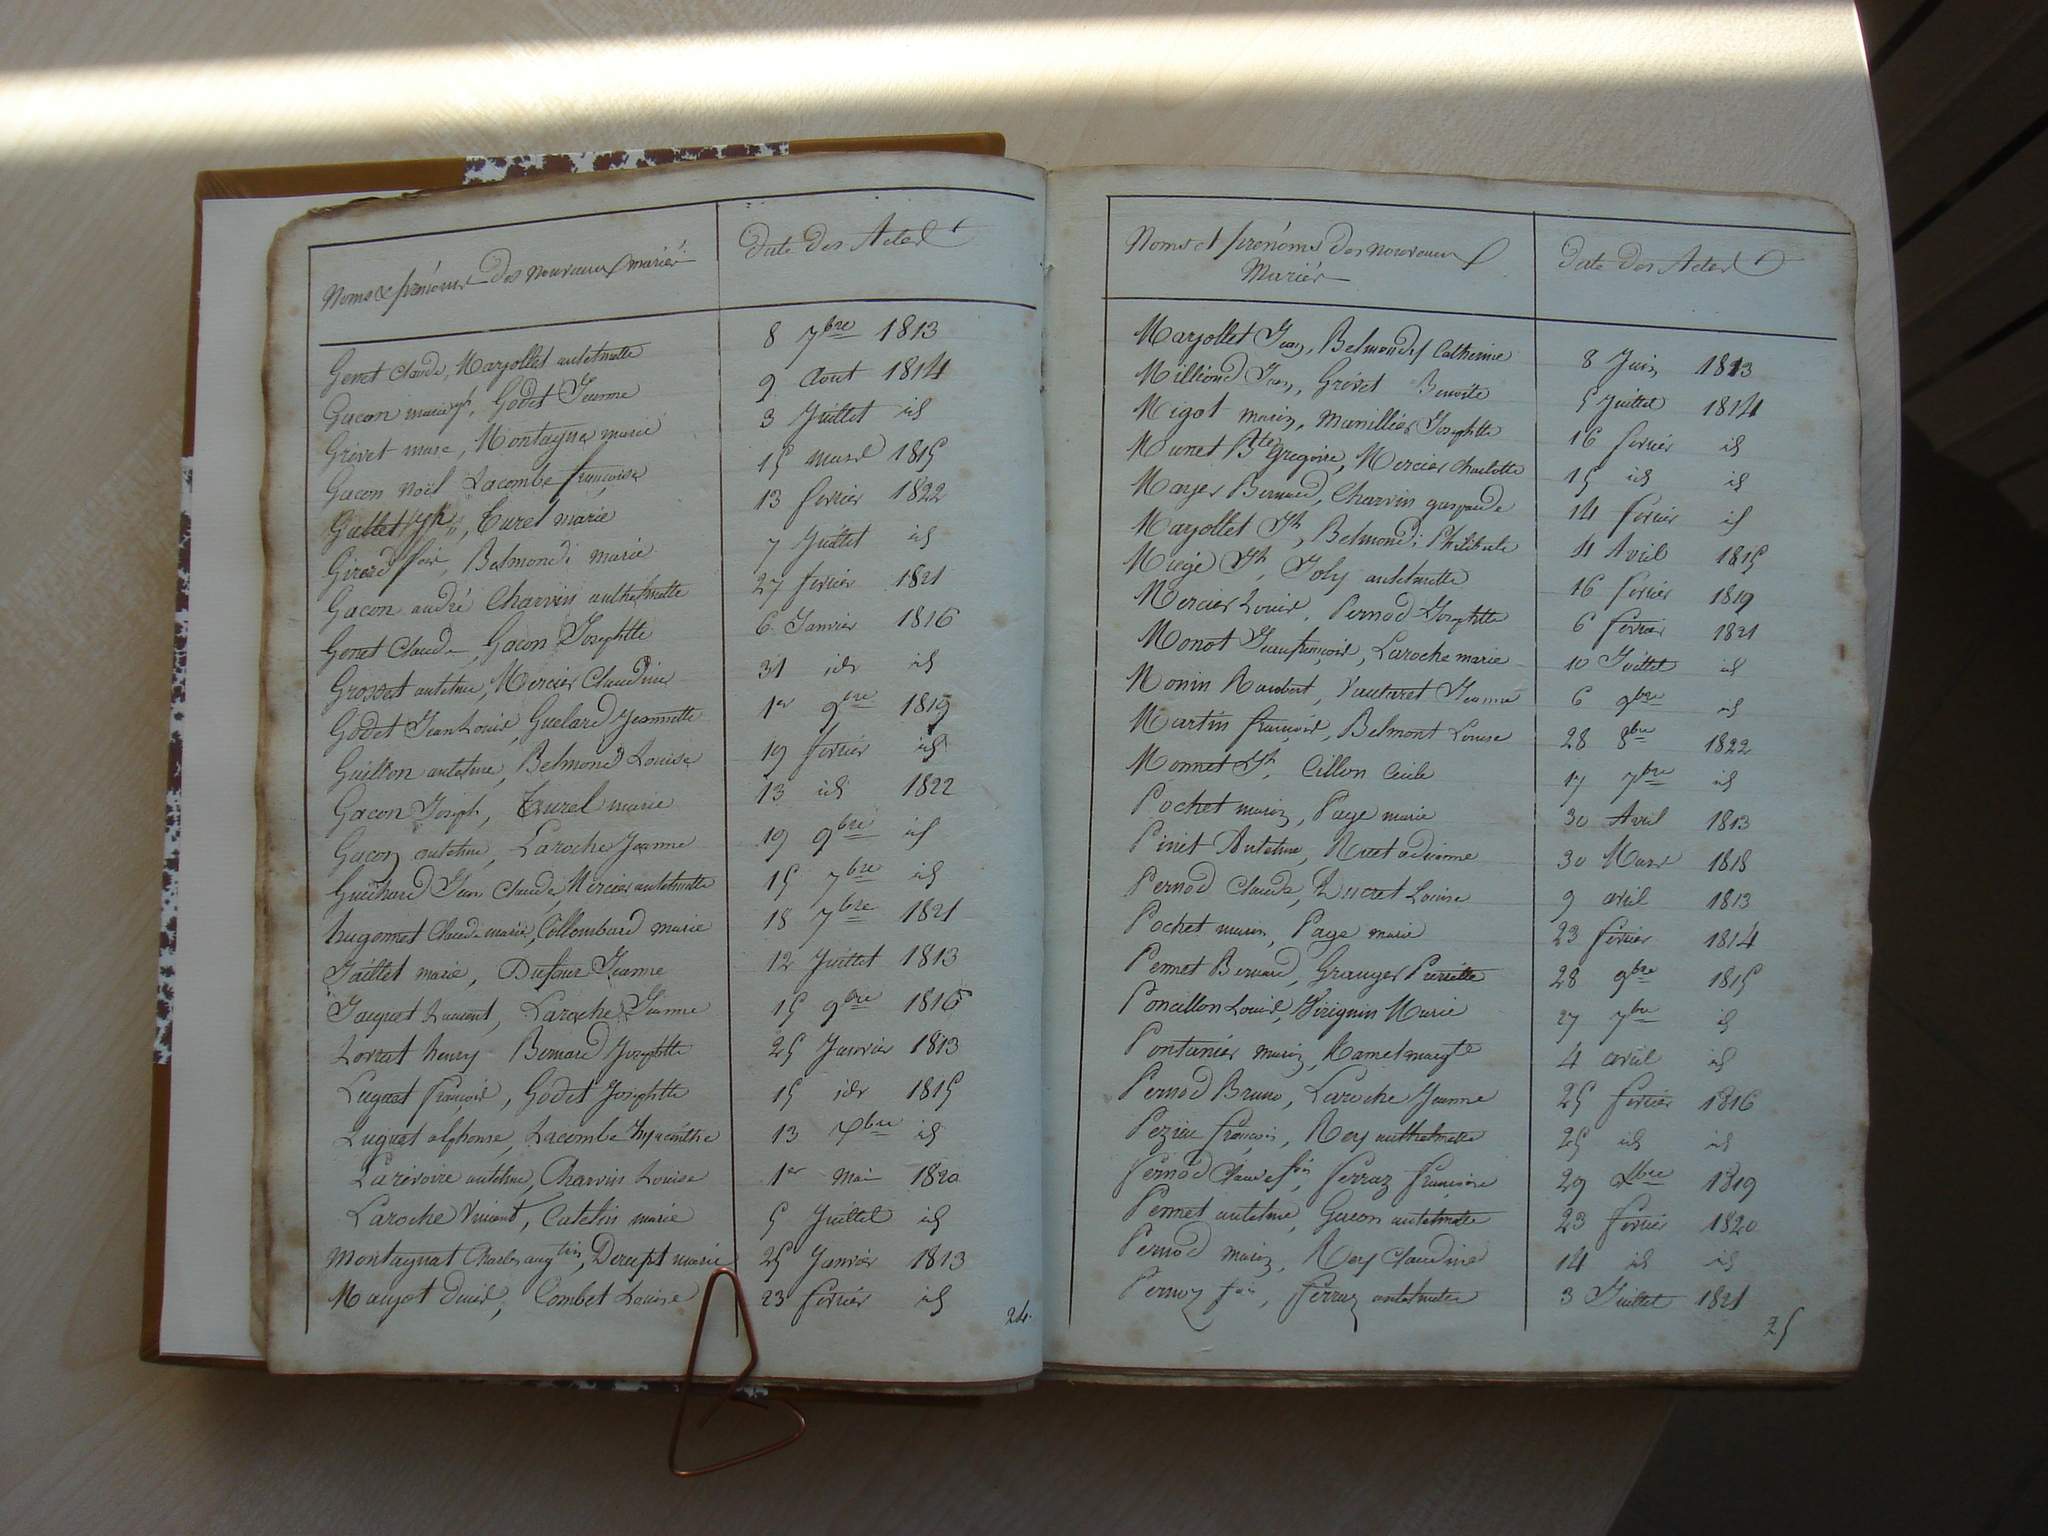 Noms & prénoms des nouveaux mariés
Date des Actes
Genet Claude, Marjollet antelmette 8 7bre 1813
Gacon marie jh, Godet Jeanne 9 Aout 1814
Grivet marc, Montagnat marie 3 Juillet id
Gacon Noël Lacombe françoise 15 mars 1815
Guillet jh, Turel marie 13 fevrier 1822
Girerd fois, Belmond marie 7 Juillet id
Gacon andré Charvin anthelmette 27 fevrier 1821
Genet Claude, Gacon Josephtte 6 Janvier 1816
Grossat antelme, Mercier Claudine 31 idr id
Godet Jean Louis, Guelard Jeannette 1er 9bre 1819
Guillon antelme, Belmond Louise 19 fevrier id
Gacon Joseph, Turel marie 13 id 1822
Gacon antelme, Laroche Jeanne 19 9bre id
Guichard Jean Claude, Mercier antelmette 15 7bre id
hugonnet Claude marie, Collombard marie 18 7bre 1821
Jaillet marie, Dufour Jeanne 12 Juillet 1813
Jacquet Laurent, Laroche Jeanne 15 9bre 1816
Lorrat henry Bernard Josephtte 25 Janvier 1813
Luguet françois, Godet Josephtte 15 idr 1815
Luguet alphonse, Lacombe hyacinthe 13 Xbre id
Larivoire antelme, Charvin Louise 1er Mai 1820
Laroche Vincent, Catelin marie 5 Juillet id
Montagnat Charles augtin, Decept marie 25 Janvier 1813
Maujot Combet Louise 23 fevrier id
24.
Noms et prénoms des nouveaux
Mariés
Date des Actes
Marjollet Jean, Belmond Catherine 8 Juin 1813
Milliond Jean, Grivet Benoite 5 Juillet 1814
Migot marin, Manillier Josephtte 16 fevrier id
Munet Bte Gregoire, Mercier Charlotte 15 id id
Mayer Bernard, Charvin gasparde 14 fevrier id
Marjollet Jh, Belmond Philiberte 4 Avril 1815
Miège Jh, Joly antelmette 16 fevrier 1819
Mercier Louis, Pernod Josephtte 6 fevrier 1821
Monot Jean françois, Laroche marie 10 Juillet id
Monin Rambert, Vautaret Jeanne 6 9bre id
Martin françois, Belmont Louise 28 8bre 1822
Monnet Jh, Cillon Cécile 17 7bre id
Pochet marin, Page marie 30 Avril 1813
Pinet Antelme, Ruet adrianne 30 Mars 1818
Pernod Claude, Ducret Louise 9 avril 1813
Pochet marin, Page marie 23 fevrier 1814
Pennet Bernard, Granger Pierrette 28 9bre 1815
Poncillon Louis, Virignin Marie 27 7bre id
Pontanier marin, Ramel margte 4 avril id
Pernod Bruno, Laroche Jeanne 25 fevrier 1816
Pezieu françois, Rey anthelmette 25 id id
Pernod Claude fois, ferraz françoise 29 Xbre 1819
Pennet antelme, Gacon antelmette 23 fevrier 1820
Pernod marin, Rey Claudine 14 id id
Pernoz fois, ferraz antelmette 3 Juillet 1821
25